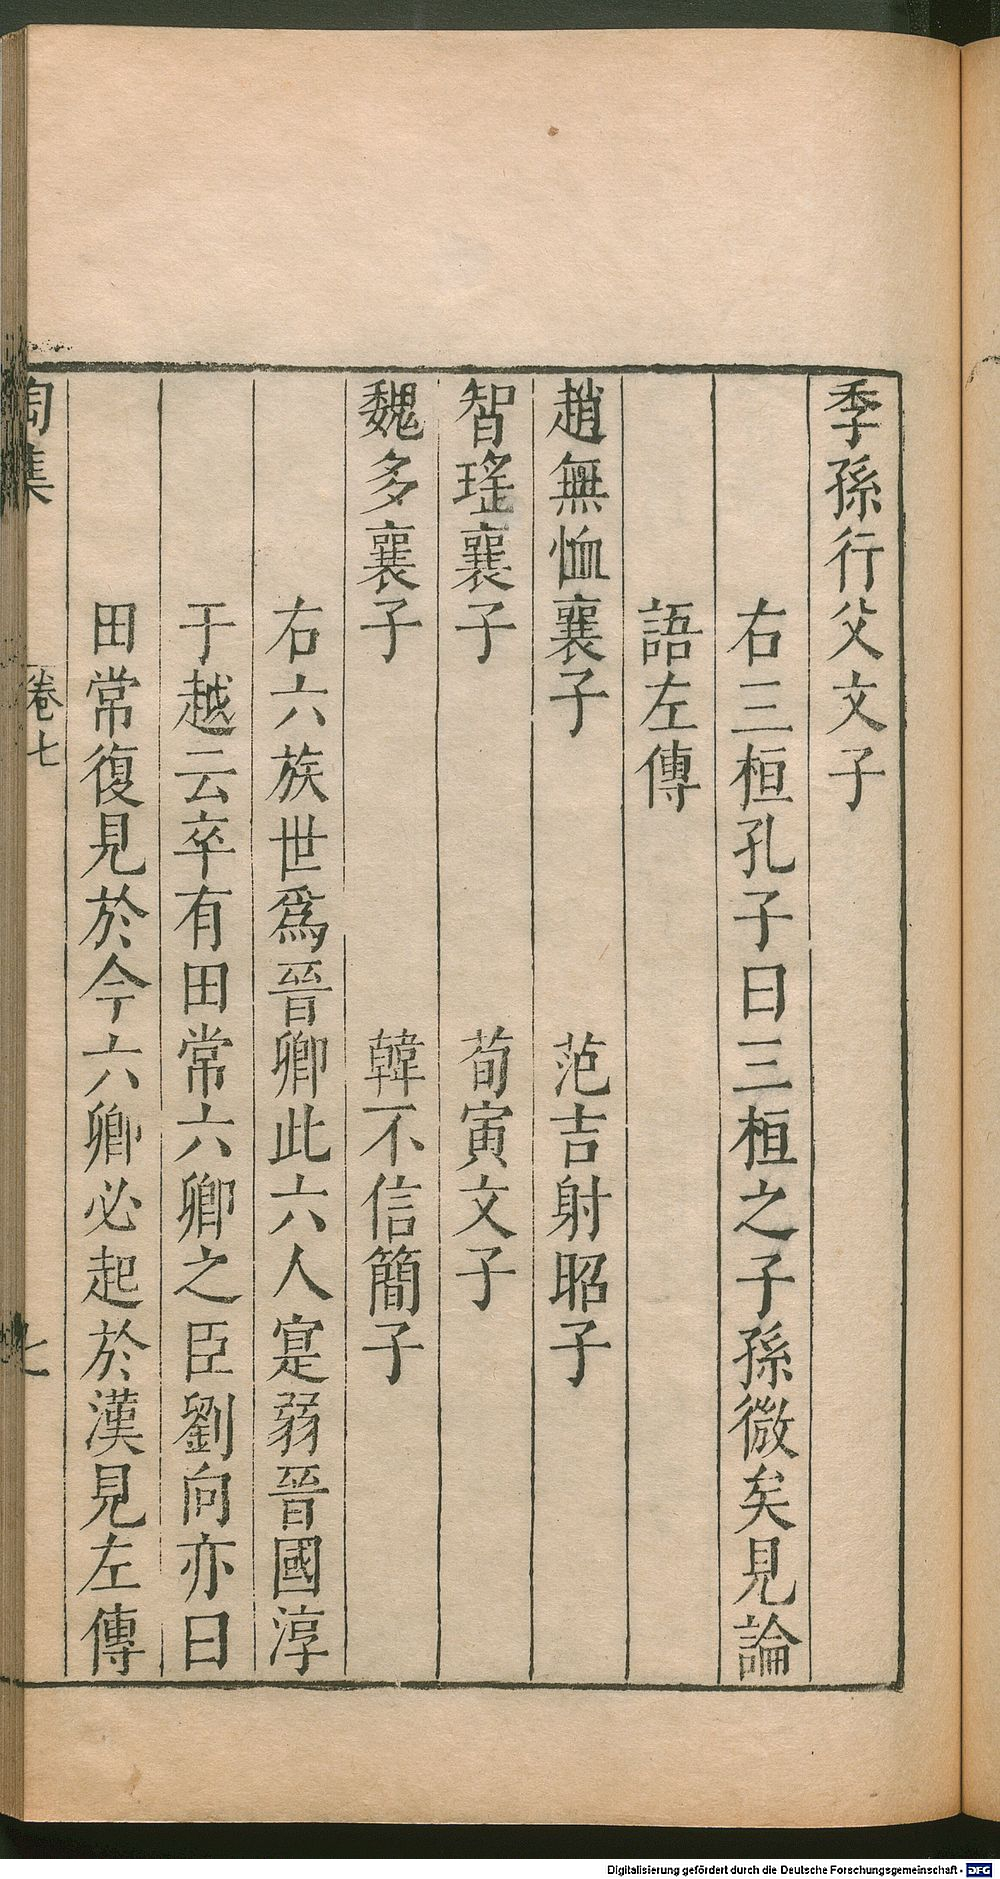 季孫行父文子
右三桓孔子曰三桓之子孫微矣見論
語左傳
趙無恤襄子　范吉射昭子
智瑤襄子　荀寅文子
魏多襄子　韓不信簡子
右六族世爲晉卿此六人寔弱晉國淳
于越云卒有田常六卿之臣劉向亦曰
田常復見於今六卿必起於漢見左傳
陶集　卷七　七
Digitalisierung gefördert durch die Deutsche Forschungsgemeinschaft - DFG